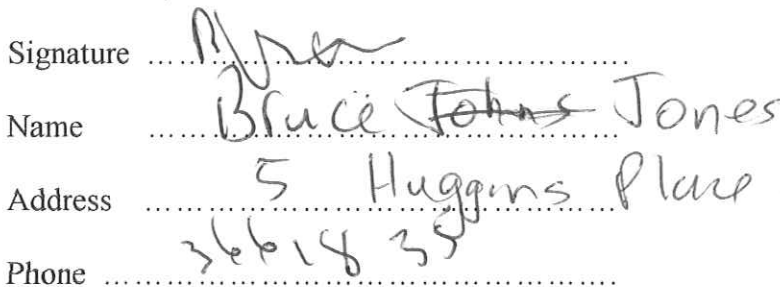 Signature
Name Bruce Johns Jones
Address 5 Huggins Place
Phone 3661835